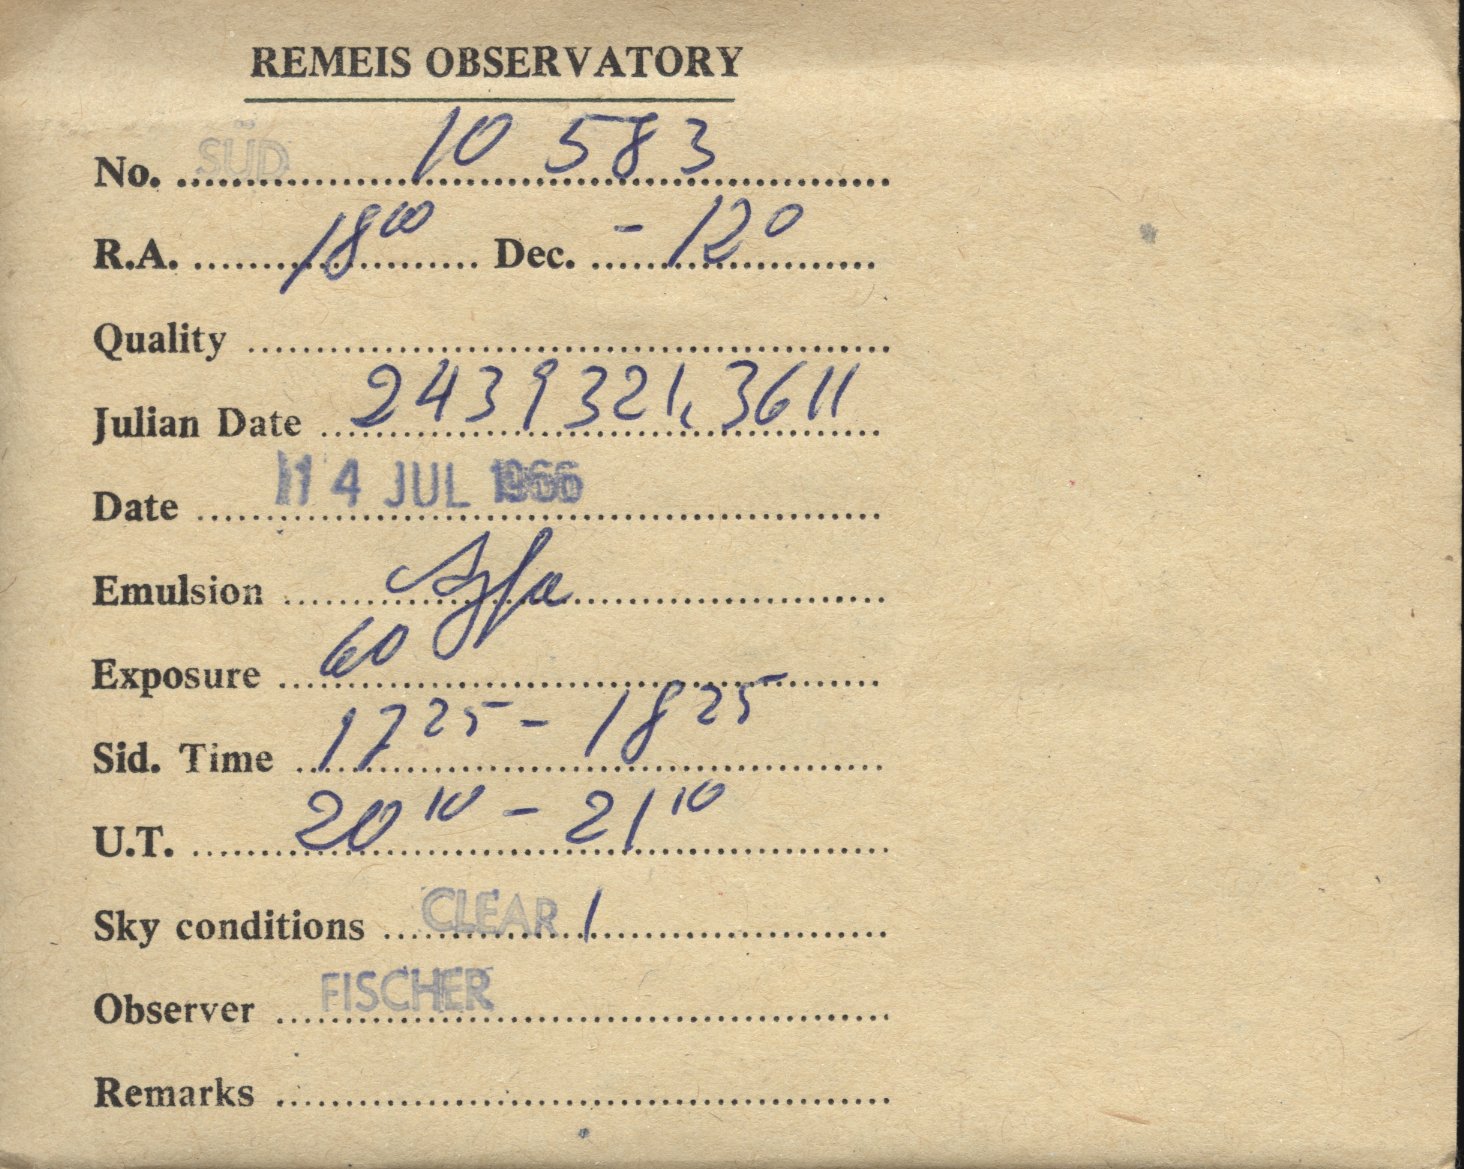 REMEIS OBSERVATORY
No. SÜD 10 583
R.A. 18⁰⁰ Dec. -12⁰
Quality
Julian Date 2439321,3611
Date 14 JUL 1966
Emulsion Agfa
Exposure 60
Sid. Time 17²⁵ - 18²⁵
U.T. 20¹⁰ - 21¹⁰
Sky conditions CLEAR 1
Observer FISCHER
Remarks